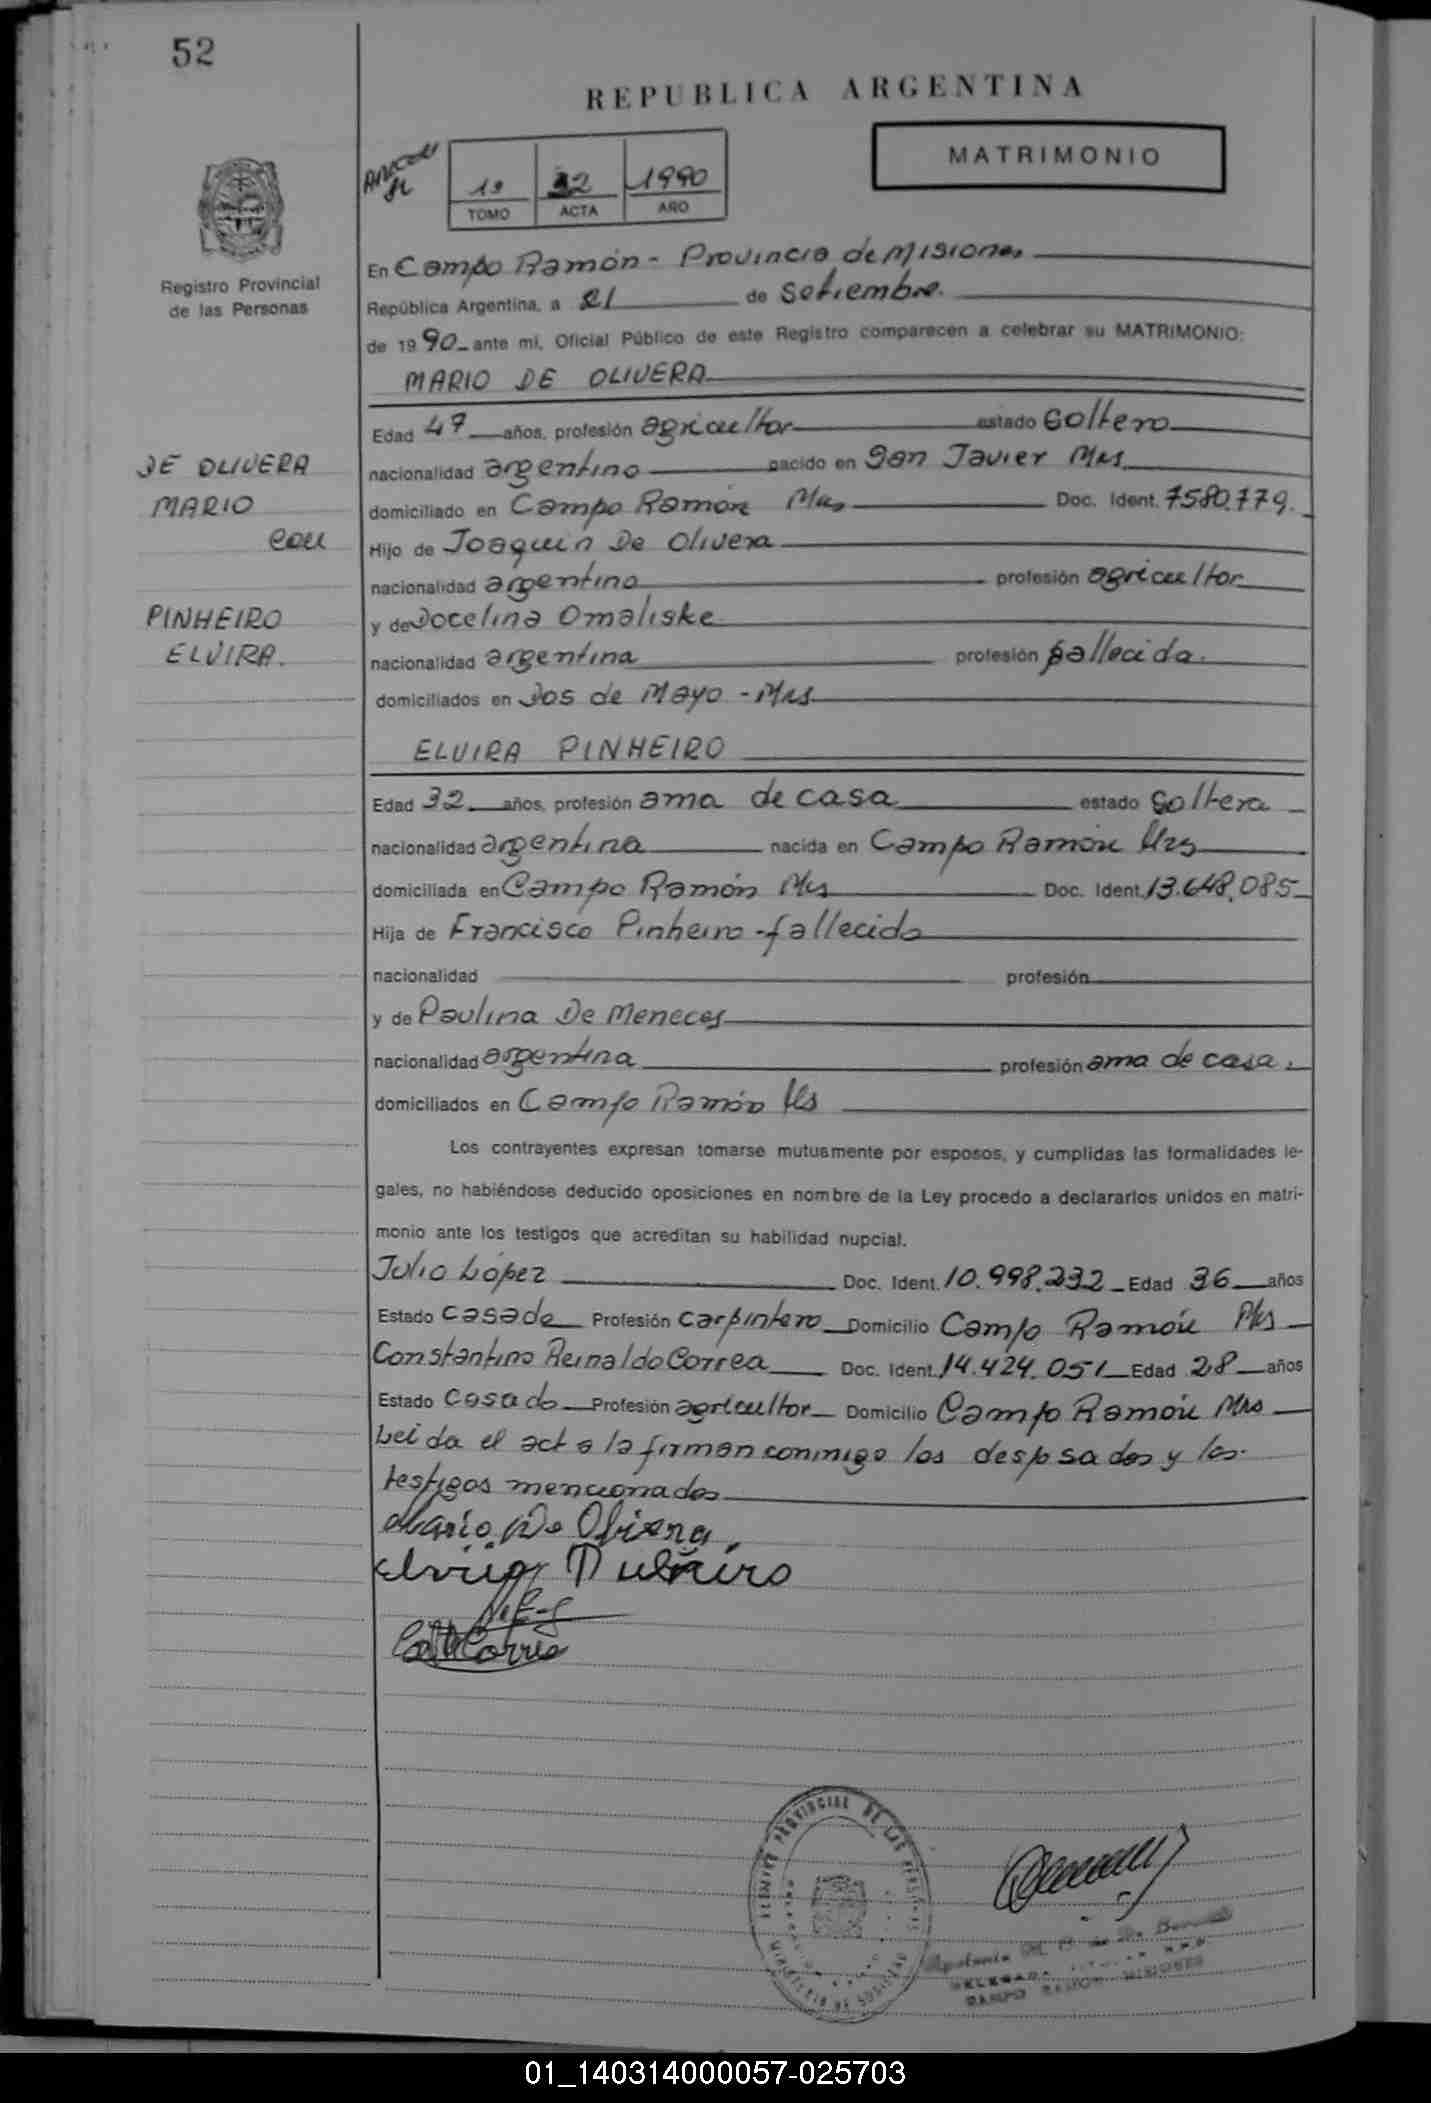 52
REPUBLICA ARGENTINA
MATRIMONIO
1º 32 1990
TOMO ACTA AÑO
Registro Provincial
de las Personas
En Campo Ramón - Provincia de Misiones
República Argentina, a 21 de Setiembre.
de 1990 ante mí, Oficial Público de este Registro comparecen a celebrar su MATRIMONIO:
MARIO DE OLIVERA
Edad 47 años, profesión agricultor estado soltero
DE OLIVERA
nacionalidad argentino nacido en San Javier Mns
MARIO
domiciliado en Campo Ramón Mns Doc. Ident. 7580.779.
con
Hijo de Joaquin De Olivera
nacionalidad argentino profesión agricultor
PINHEIRO
y de Docelina Omaliske
ELVIRA.
nacionalidad argentina profesión fallecida.
domiciliados en Dos de Mayo - Mns
ELVIRA PINHEIRO
Edad 32 años, profesión ama de casa estado soltera
nacionalidad argentina nacida en Campo Ramón Mns
domiciliada en Campo Ramón Mns Doc. Ident. 13.648.085
Hija de Francisco Pinheiro - fallecido
nacionalidad profesión
y de Paulina De Meneces
nacionalidad argentina profesión ama de casa.
domiciliados en Campo Ramón Mns
Los contrayentes expresan tomarse mutuamente por esposos, y cumplidas las formalidades le-
gales, no habiéndose deducido oposiciones en nombre de la Ley procedo a declararlos unidos en matri-
monio ante los testigos que acreditan su habilidad nupcial.
Julio López Doc. Ident. 10.998.232 Edad 36 años
Estado casado Profesión carpintero Domicilio Campo Ramón Mns
Constantino Reinaldo Correa Doc. Ident. 14.424.051 Edad 28 años
Estado casado Profesión agricultor Domicilio Campo Ramón Mns
Leida el acta la firman conmigo los desposados y los
testigos mencionados
Mario De Olivera
Elvira Piñeiro
Correa
REGISTRO PROVINCIAL DE LAS PERSONAS
DELEGADA
CAMPO RAMON MISIONES
01_140314000057-025703